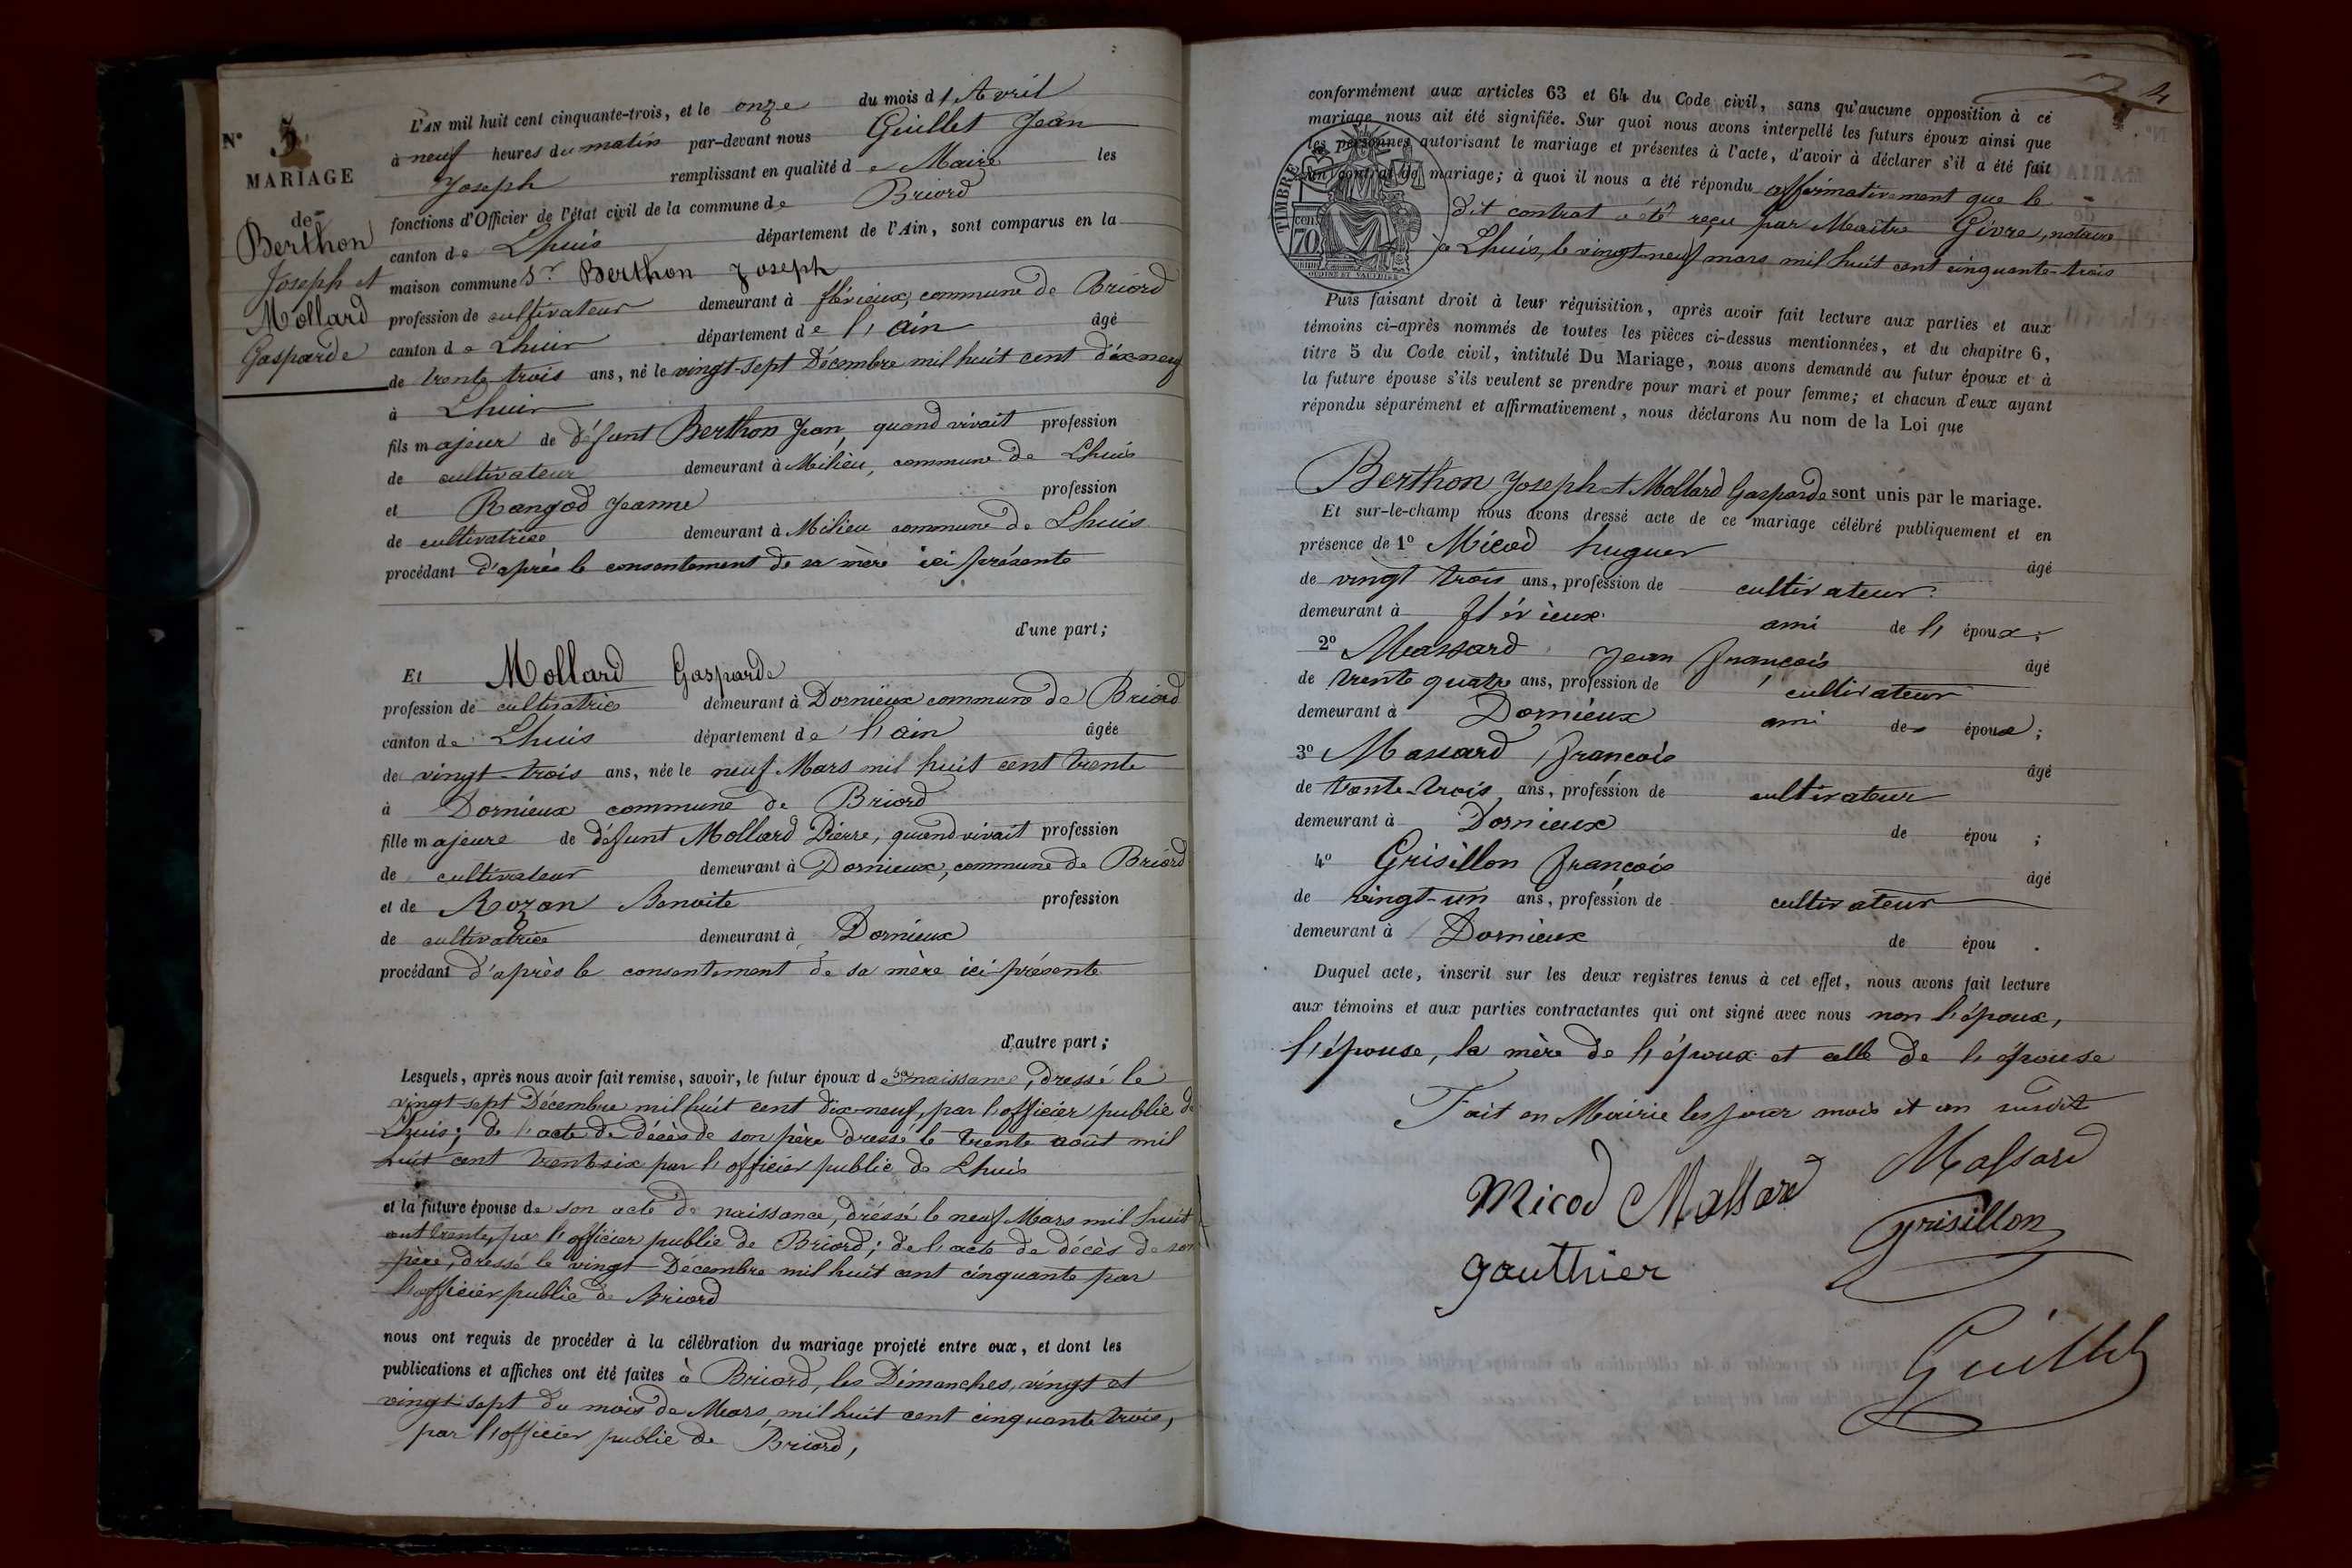 N° 5
MARIAGE
de
Berthon
Joseph et
Mollard
Gasparde
L'AN mil huit cent cinquante-trois, et le onze du mois d'Avril
à neuf heures du matin par-devant nous Guillet Jean
Joseph remplissant en qualité de Maire les
fonctions d'Officier de l'état civil de la commune de Briord
canton de Lhuis département de l'Ain, sont comparus en la
maison commune Sr Berthon Joseph
profession de cultivateur demeurant à flévieux, commune de Briord
canton de Lhuis département de l'ain âgé
de trente trois ans, né le vingt-sept Décembre mil huit cent dix-neuf
à Lhuis
fils majeur de défunt Berthon Jean, quand vivait profession
de cultivateur demeurant à Milieu, commune de Lhuis
et Rangod Jeanne profession
de cultivatrice demeurant à Milieu commune de Lhuis
procédant d'après le consentement de sa mère ici présente
d'une part;
Et Mollard Gasparde
profession de cultivatrice demeurant à Dornieux commune de Briord
canton de Lhuis département de l'ain âgée
de vingt-trois ans, née le neuf Mars mil huit cent trente
à Dornieux commune de Briord
fille majeure de défunt Mollard Pierre, quand vivait profession
de cultivateur demeurant à Dornieux, commune de Briord
et de Rozan Benoite profession
de cultivatrice demeurant à Dornieux
procédant d'après le consentement de sa mère ici présente
d'autre part;
Lesquels, après nous avoir fait remise, savoir, le futur époux de sa naissance, dressé le
vingt-sept Décembre mil huit cent dix-neuf, par l'officier public de
Lhuis; de l'acte de décès de son père dressé le trente août mil
huit cent trente six par l'officier public de Lhuis
et la future épouse de son acte de naissance, dréssé le neuf Mars mil huit
cent trente, par l'officier public de Briord; de l'acte de décès de son
père, dressé le vingt Décembre mil huit cent cinquante par
l'officier public de Briord
nous ont requis de procéder à la célébration du mariage projeté entre eux, et dont les
publications et affiches ont été faites à Briord, les Dimanches, vingt et
vingt sept du mois de Mars, mil huit cent cinquante trois,
par l'officier public de Briord,
4
conformément aux articles 63 et 64 du Code civil, sans qu'aucune opposition à ce
mariage nous ait été signifiée. Sur quoi nous avons interpellé les futurs époux ainsi que
les personnes autorisant le mariage et présentes à l'acte, d'avoir à déclarer s'il a été fait
un contrat de mariage; à quoi il nous a été répondu affirmativement que le
dit contrat a été reçu par Maître Givre, notaire
à Lhuis, le vingt-neuf mars mil huit cent cinquante-trois
TIMBRE
cen
70
Puis faisant droit à leur réquisition, après avoir fait lecture aux parties et aux
témoins ci-après nommés de toutes les pièces ci-dessus mentionnées, et du chapitre 6,
titre 5 du Code civil, intitulé Du Mariage, nous avons demandé au futur époux et à
la future épouse s'ils veulent se prendre pour mari et pour femme; et chacun d'eux ayant
répondu séparément et affirmativement, nous déclarons Au nom de la Loi que
Berthon Joseph et Mollard Gasparde sont unis par le mariage.
Et sur-le-champ nous avons dressé acte de ce mariage célébré publiquement et en
présence de 1° Micod hugues âgé
de vingt trois ans, profession de cultivateur
demeurant à flévieux ami de l'époux;
2° Massard Jean François âgé
de trente quatre ans, profession de cultivateur
demeurant à Dornieux ami des époux;
3° Massard François âgé
de trente-trois ans, profession de cultivateur
demeurant à Dornieux de épou ;
4° Grisillon François âgé
de vingt-un ans, profession de cultivateur
demeurant à Dornieux de épou .
Duquel acte, inscrit sur les deux registres tenus à cet effet, nous avons fait lecture
aux témoins et aux parties contractantes qui ont signé avec nous non l'époux,
l'épouse, la mère de l'époux et celle de l'épouse
Fait en Mairie les jour mois et an susdit
Micod Massard Massard
gauthier grisillon
Guillet